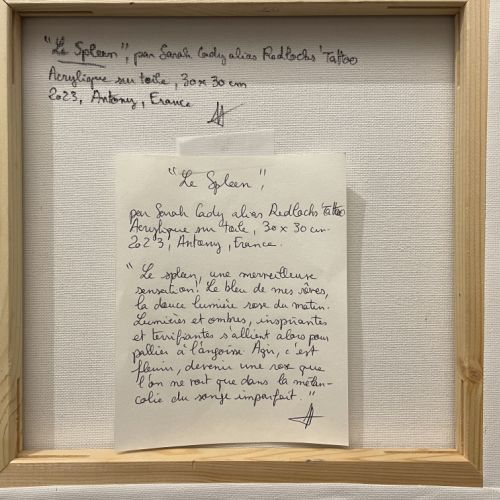 "Le Spleen", par Sarah Cady alias Redlocks'Tattoo
Acrylique sur toile, 30x30 cm
2023, Antony, France
"Le Spleen",
par Sarah Cady alias Redlocks'Tattoo
Acrylique sur toile, 30 x 30 cm.
2023, Antony, France.
"Le spleen, une merveilleuse
sensation! Le bleu de mes rêves,
la douce lumière rose du matin.
Lumières et ombres, inspirantes
et terrifiantes s'allient alors pour
pallier à l'angoisse. Agir, c'est
fleurir, devenir une rose que
l'on ne voit que dans la mélan-
colie du songe imparfait."